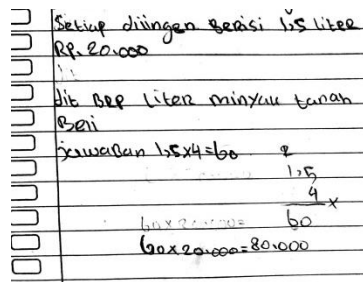 Setiap diingen berisi 1,5 liter
Rp. 20.000
dit Brp Liter minyak tanah
Beri
jawaban 1,5x4=60
2
1,5
4 x
60
60x20.000=
60x20.000=80.000